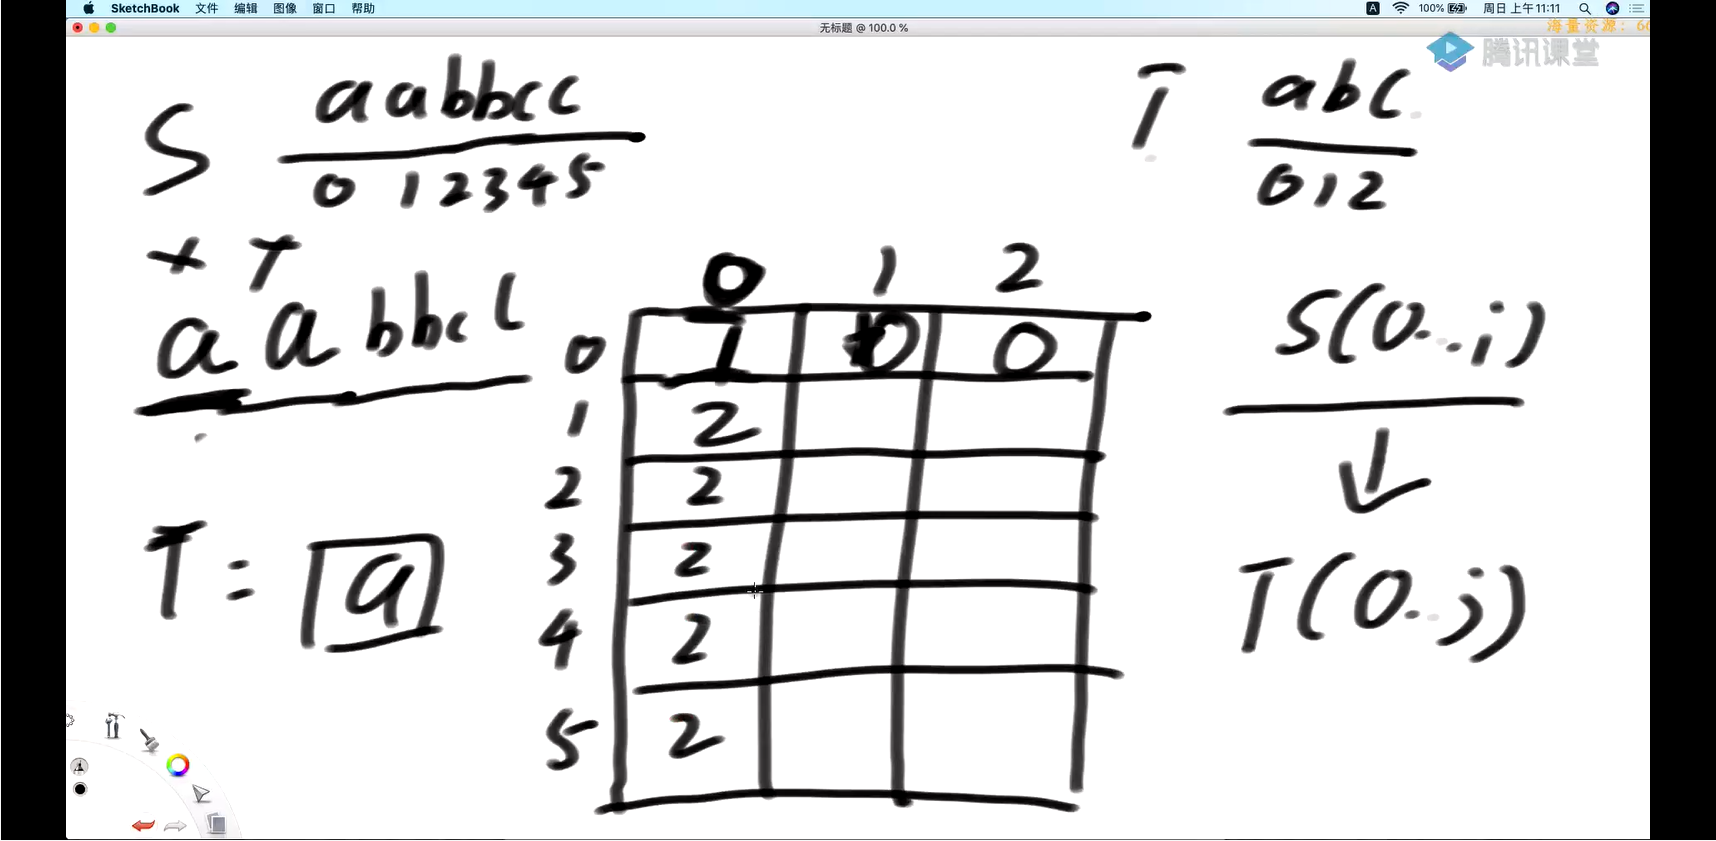 SketchBook 文件 编辑 图像 窗口 帮助 A 100% 周日 上午11:11
无标题 @ 100.0 %
海量资源：
腾讯课堂
S aabbcc
0 1 2 3 4 5
T abc
0 1 2
+ T
a a b b c c
0 1 2
0 1 0 0
1 2
2 2
3 2
4 2
5 2
S(0...i)
T(0..j)
T = a